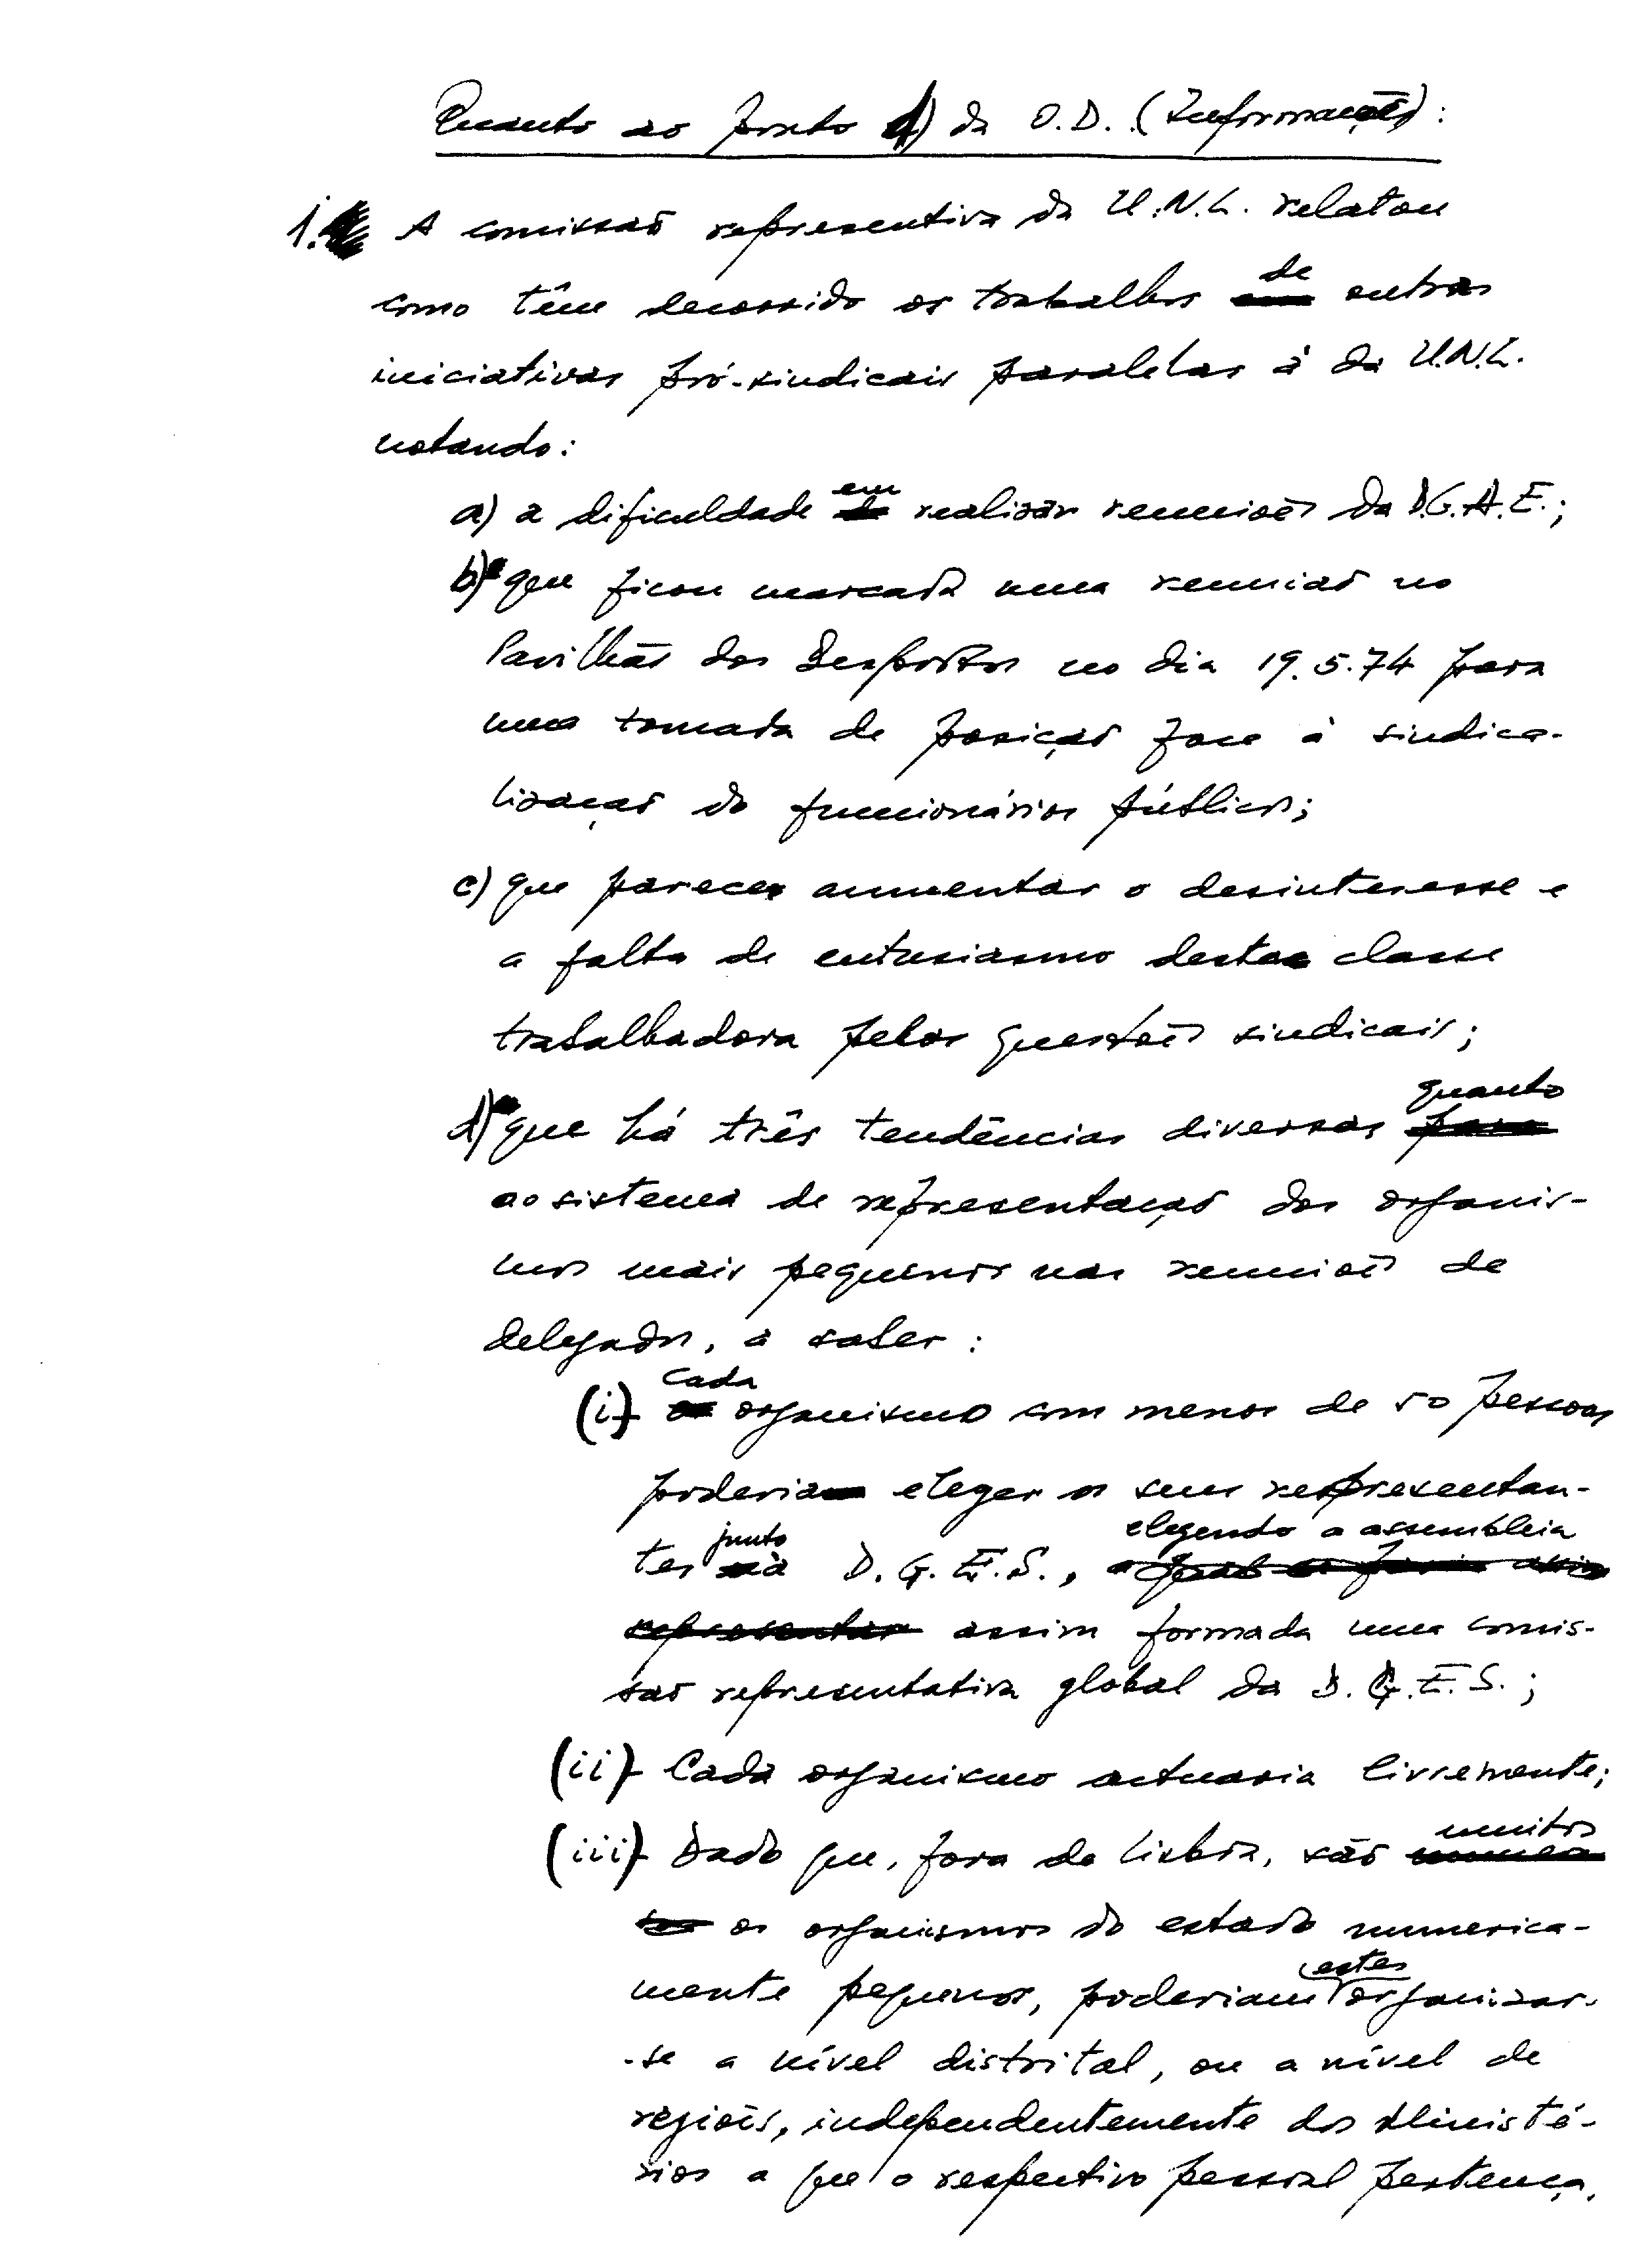 Quanto ao ponto d) da O.D. (Informações):
1. A comissão representiva da U.N.L. relatou
como têm decorrido os trabalhos de outras
iniciativas pró-sindicais paralelas à da U.N.L.
notando:
a) a dificuldade em realizar reuniões da D.G.A.E.;
b) que ficou marcada uma reunião no
Pavilhão dos Desportos no dia 19.5.74 para
uma tomada de posição face à sindica-
lização do funcionários públicos;
c) que parece aumentar o desinteresse e
a falta de entusiasmo desta classe
trabalhadora pelas questões sindicais;
d) que há três tendências diversas quanto
ao sistema de representação dos organis-
mos mais pequenos nas reuniões de
delegados, a saber:
(i) Cada organismo com menos de 50 pessoas
poderia eleger os seus representan-
tes junto à D.G.E.S., elegendo a assembleia
assim formada uma comis-
são representativa global da D.G.E.S.;
(ii) Cada organismo actuaria livremente;
(iii) Dado que, fora de Lisboa, são muitos
os organismos do estado numerica-
mente pequenos, poderiam estes organizar-
-se a nível distrital, ou a nível de
regiões, independentemente dos Ministé-
rios a que o respectivo pessoal pertença.